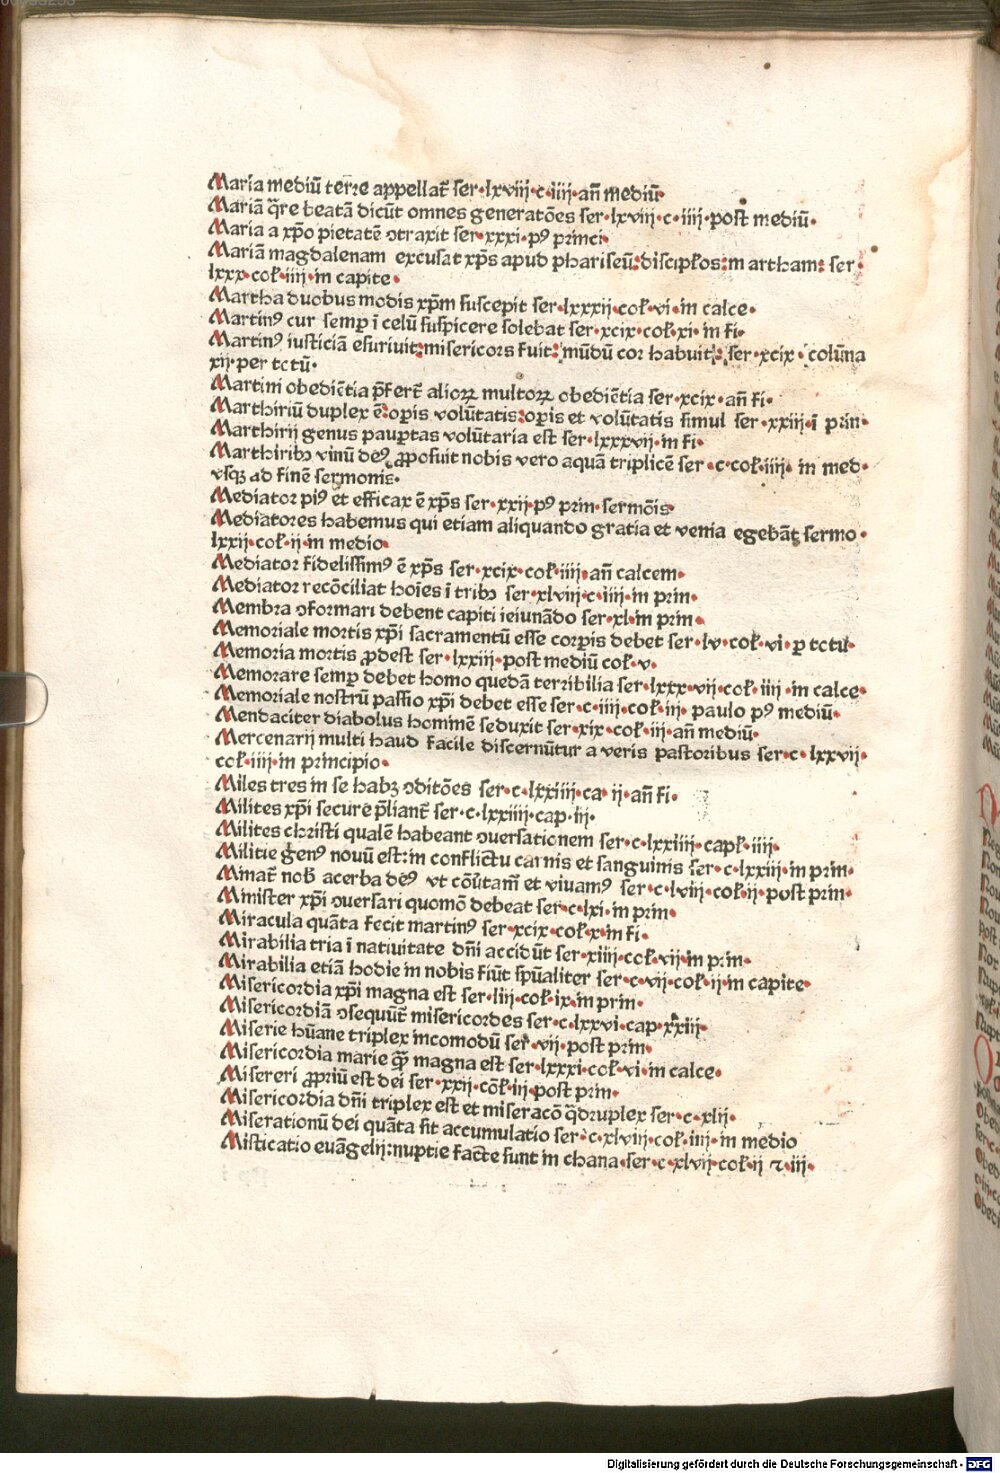 Maria mediū terre appellat᷑ ser·lxviij·c·iiij·an̄ mediū·
Mariā q̄re beatā dicūt omnes generatōes ser·lxviij·c·iiij·post mediū·
Maria a xp̄o pietatē ↄtraxit ser·xxxi·pꝰ princi·
Mariā magdalenam excusat xp̄s apud phariseū:discipl̄os:martham: ser·
lxxx·col̄·iiij·in capite·
Martha duobus modis xp̄m suscepit ser·lxxxij·col̄·vi·in calce·
Martinꝰ cur semp̱ ī celū suspicere solebat ser·xcix·col̄·xi·in fi·
Martinꝰ iusticiā esuriuit:misericors fuit:mūdū cor habuit: ser·xcix·colūna
xij·per totū·
Martini obediētia p̄fert᷑ alioꝝ multoꝝ obediētia ser·xcix·an̄ fi·
Marthiriū duplex ē:oꝑis volūtatis:oꝑis et volūtatis simul ser·xxiij·ī prin·
Marthirij genus pauꝑtas volūtaria est ser·lxxxvij·in fi·
Marthiribꝫ vinū deꝰ ꝓposuit nobis vero aquā triplicē ser·c·col̄·iiij· in med·
vsqꝫ ad finē sermonis·
Mediator piꝰ et efficax ē xp̄s ser·xxij·pꝰ prin·sermōis·
Mediatores habemus qui etiam aliquando gratia et venia egebāt sermo·
lxxij·col̄·ij·in medio·
Mediator fidelissimꝰ ē xp̄s ser·xcix·col̄·iiij·an̄ calcem·
Mediator recōciliat hoīes ī tribꝫ ser·xlviij·c·iiij·in prin·
Membra ↄformari debent capiti ieiunādo ser·xl·in prin·
Memoriale mortis xp̄i sacramentū esse corꝑis debet ser·lv·col̄·vi·ꝑ totū·
Memoria mortis ꝓdest ser·lxxiij·post mediū col̄·v·
Memorare semꝑ debet homo quedā terribilia ser·lxxx·vij·col̄·iiij·in calce·
Memoriale nostrū passio xp̄i debet esse ser·c·iiij·col̄·iij· paulo pꝰ mediū·
Mendaciter diabolus hominē seduxit ser·xix·col̄·iij·an̄ mediū·
Mercenarij multi haud facile discernūtur a veris pastoribus ser·c·lxxvij·
col̄·iiij·in principio·
Miles tres in se habꝫ ↄditōes ser·c·lxxiiij·ca· ij·an̄ fi·
Milites xp̄i secure p̄liant᷑ ser·c·lxxiiij·cap·iij·
Milites christi qualē habeant ↄuersationem ser·c·lxxiiij·capl̄·iiij·
Militie genꝰ nouū est:in conflictu carnis et sanguinis ser·c·lxxiiij·in prin·
Minat᷑ nob̄ acerba deꝰ vt cōūtam᷑ et viuamꝰ ser·c·lviij·col̄·ij·post prin·
Minister xp̄i ↄuersari quomō debeat ser·c·lxi·in prin·
Miracula quāta fecit martinꝰ ser·xcix·col̄·x·in fi·
Mirabilia tria ī natiuitate dn̄i accidūt ser·xiiij·col̄·vij·in prin·
Mirabilia etiā hodie in nobis fiūt spūaliter ser·c·vij·col̄·ij·in capite·
Misericordia xp̄i magna est ser·liij·col̄·ix·in prin·
Misericordiā ↄsequūt᷑ misericordes ser·c·lxxvi·cap·xxiij·
Miserie hūane triplex incomodū ser·vij·post prin·
Misericordia marie qꝫ magna est ser·lxxxi·col̄·vi·in calce·
Misereri ꝓpriū est dei ser·xxij·cōl·iij·post prin·
Misericordia dn̄i triplex est et miseracō q̄druplex ser·c·xlij·
Miserationū dei quāta sit accumulatio ser·c·xlviij·col̄·iiij·in medio
Misticatio euāgelij:nuptie facte sunt in chana·ser·c·xlvij·col̄·ij ⁊·iij·
Digitalisierung gefördert durch die Deutsche Forschungsgemeinschaft - DFG